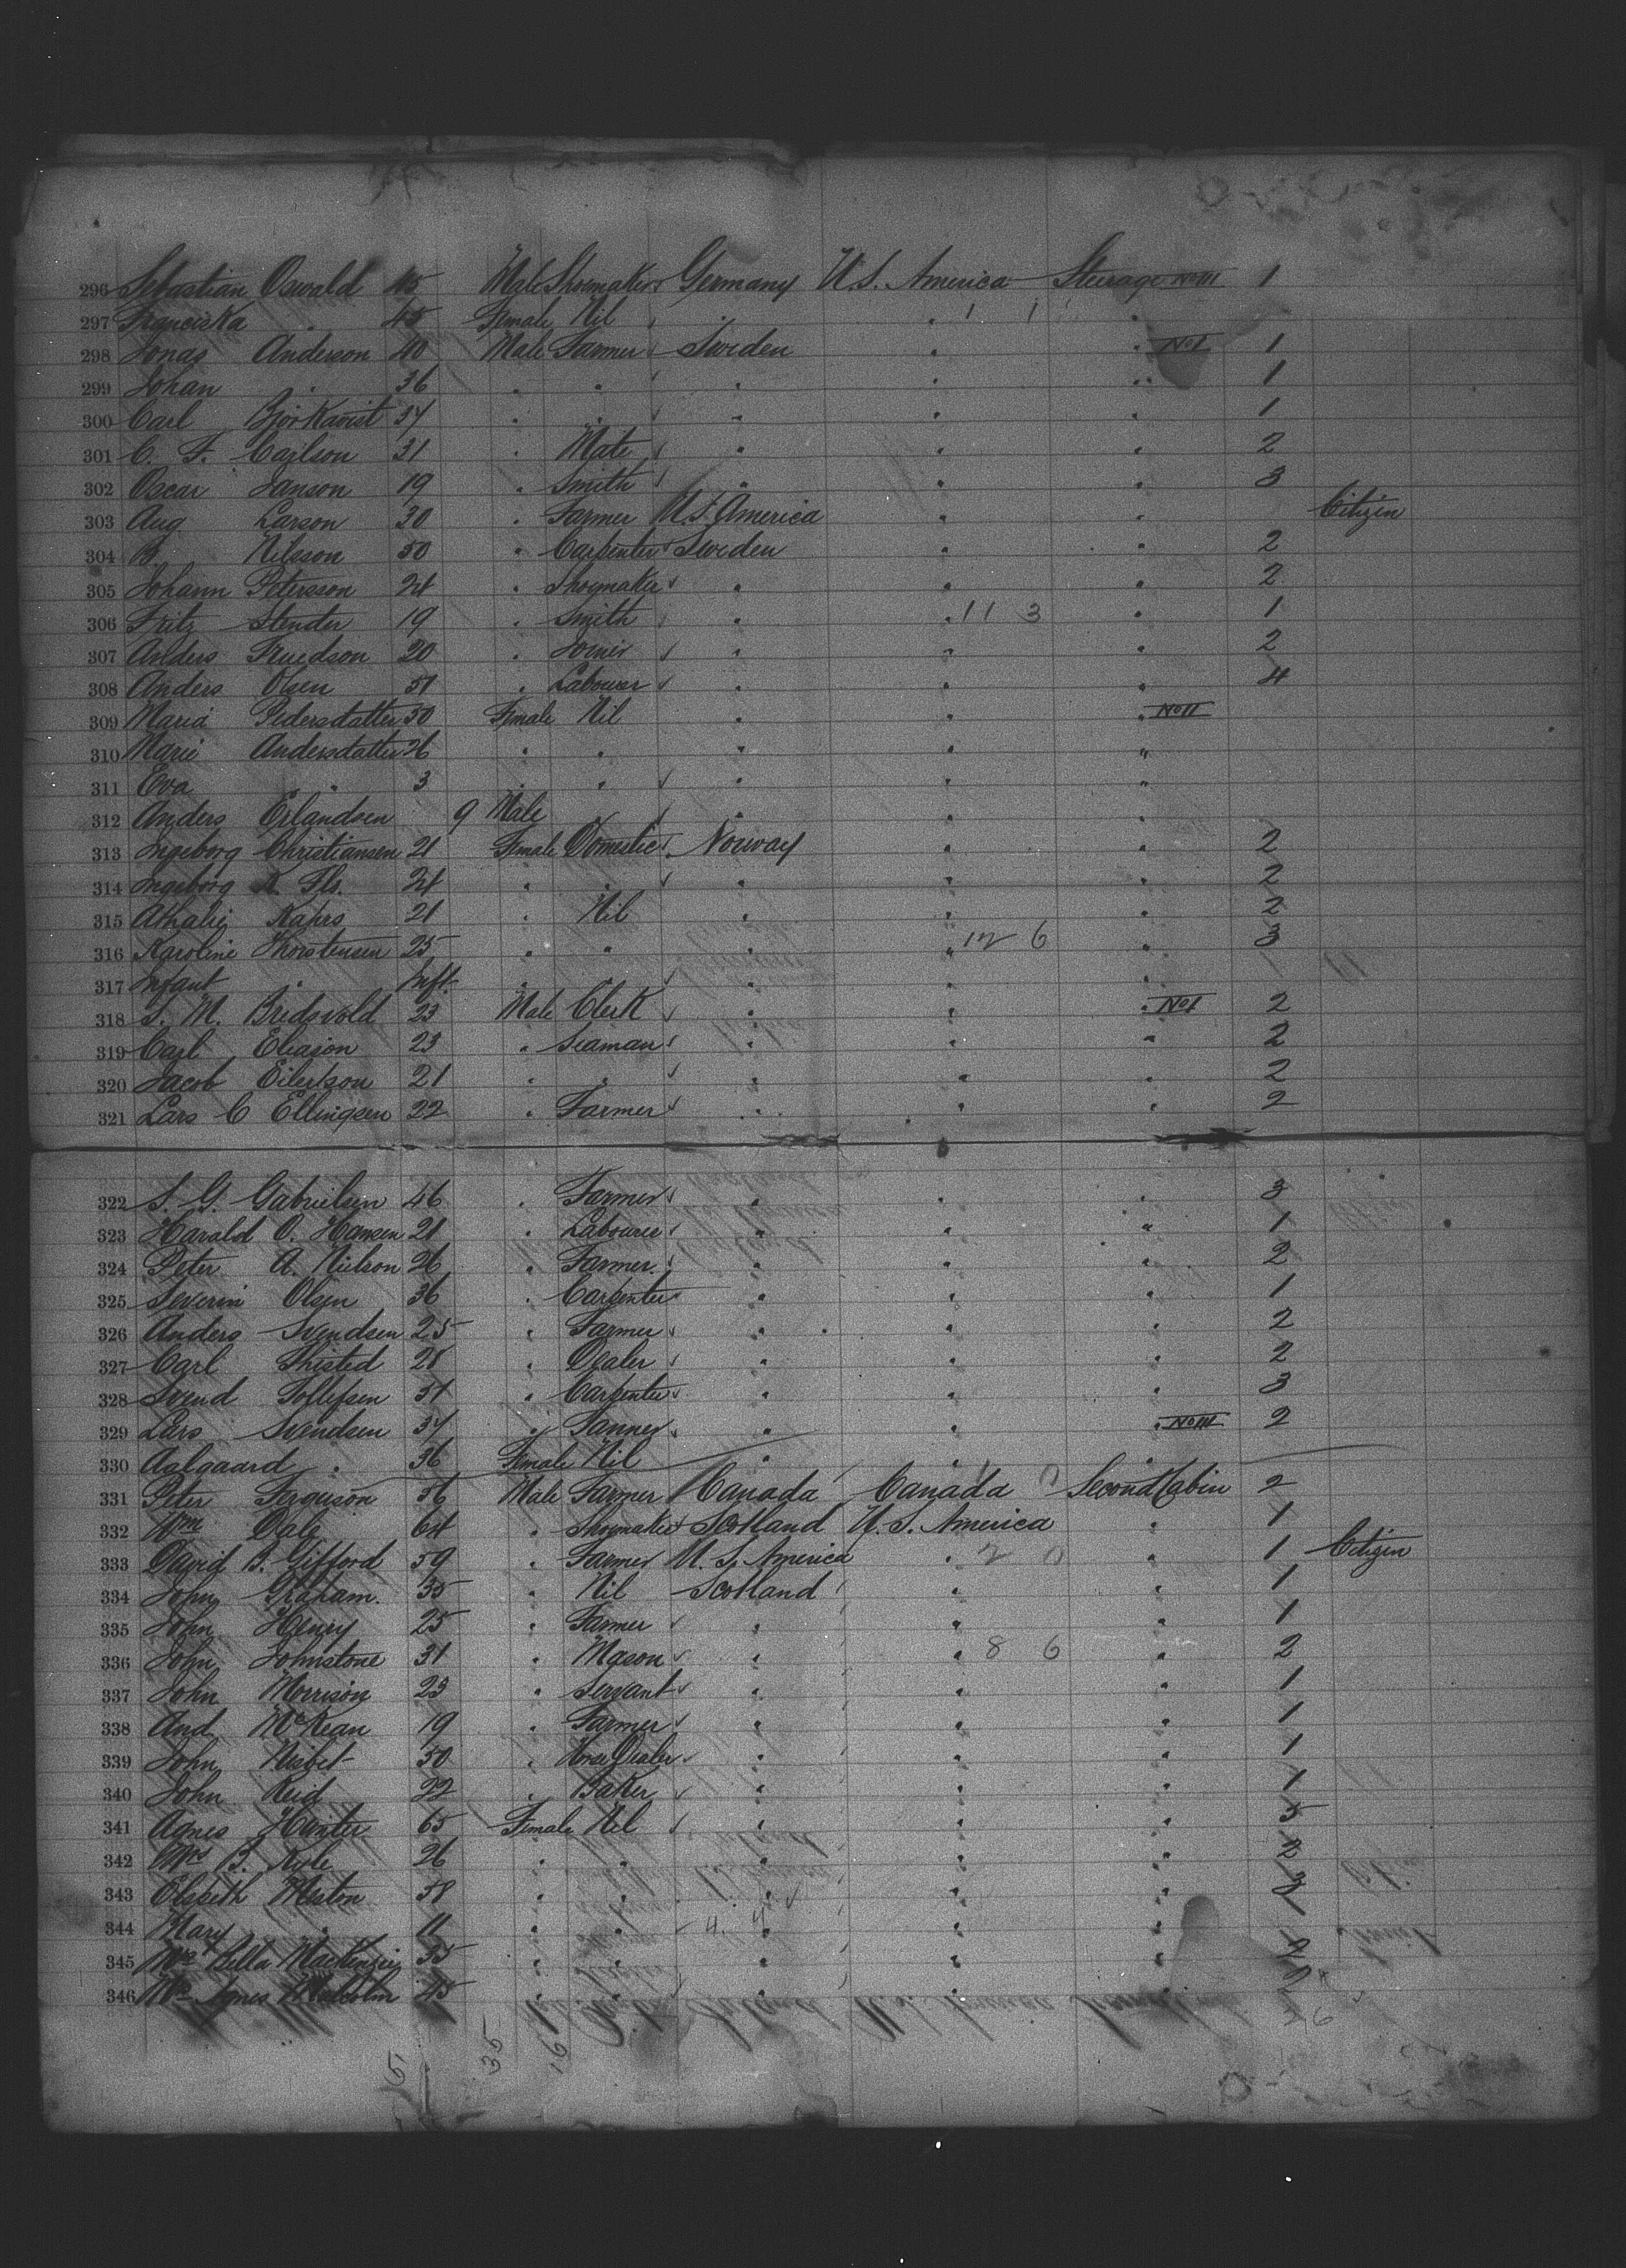 296 Sebastian Oswald 45 Male Shoemaker Germany U.S. America Steerage No III 1
297 Franciska " 45 Female Nil " " 1 1 "
298 Jonas Anderson 40 Male Farmer Sweden " " No I 1
299 Johan " 36 " " " " " 1
300 Carl Björkqvist 34 " " " " " 1
301 C. F. Carlson 31 " Mate " " " 2
302 Oscar Janson 19 " Smith " " " 3
303 Aug Larson 30 " Farmer U.S. America " " Citizen
304 B. Nilsson 50 " Carpenter Sweden " " 2
305 Johann Petersson 24 " Shoemaker " " " 2
306 Fritz Stender 19 " Smith " " 11 3 " 1
307 Anders 20 " Joiner " " " 2
308 Anders Olsen 51 " Labourer " " " 4
309 Maria Pedersdatter 50 Female Nil " " " No II
310 Marie Andersdatter 26 " " " " "
311 Eva " 3 " " " " "
312 Anders Erlandsen 9 Male " " " "
313 Ingeborg Christiansen 21 Female Domestic Norway " " 2
314 Ingeborg 24 " " " " " 2
315 Athalie 21 " Nil " " " 2
316 Karoline Thorstensen 25 " " " " 12 6 " 3
317 Infant " Inft. " " " " "
318 S. M. Bredsvold 23 Male Clerk " " " No I 2
319 Carl Eliason 23 " Seaman " " " 2
320 Jacob Eilertson 21 " " " " " 2
321 Lars C Ellingsen 22 " Farmer " " " 2
322 S. G. Gabrielsen 46 " Farmer " " " 3
323 Harald O. Hansen 21 " Labourer " " " 1
324 Peter A. Nielson 26 " Farmer " " " 2
325 Severin Olsen 36 " Carpenter " " " 1
326 Anders Svendsen 25 " Farmer " " " 2
327 Carl Thisted 28 " Dealer " " " 2
328 Svend Tollefsen 51 " Carpenter " " " 3
329 Lars Svendsen 34 " Tanner " " " No III 2
330 Aalgaard " 36 Female Nil " " "
331 Peter Ferguson 56 Male Farmer Canada Canada Second Cabin 2
332 Wm Dale 64 " Shoemaker Scotland U.S. America " 1
333 David B. Gifford 59 " Farmer U.S. America " 2 0 " 1 Citizen
334 John Graham 35 " Nil Scotland " " 1
335 John Henry 25 " Farmer " " " 1
336 John Johnstone 31 " Mason " " 8 6 " 2
337 John Morrison 23 " Servant " " " 1
338 And McKean 19 " Farmer " " " 1
339 John Nisbet 50 " Horse Dealer " " " 1
340 John Reid 22 " Baker " " " 1
341 Agnes Hunter 65 Female Nil " " " 5
342 Mrs B. Kyle 26 " " " " " 2
343 Elspeth Meston 58 " " " " " 3
344 Mary " 11 " " 4. 4 " " " 1
345 Mrs Bella Mackenzie 35 " " " " " 2
346 Mrs Agnes Malcolm 45 " " " " " 2
35 16